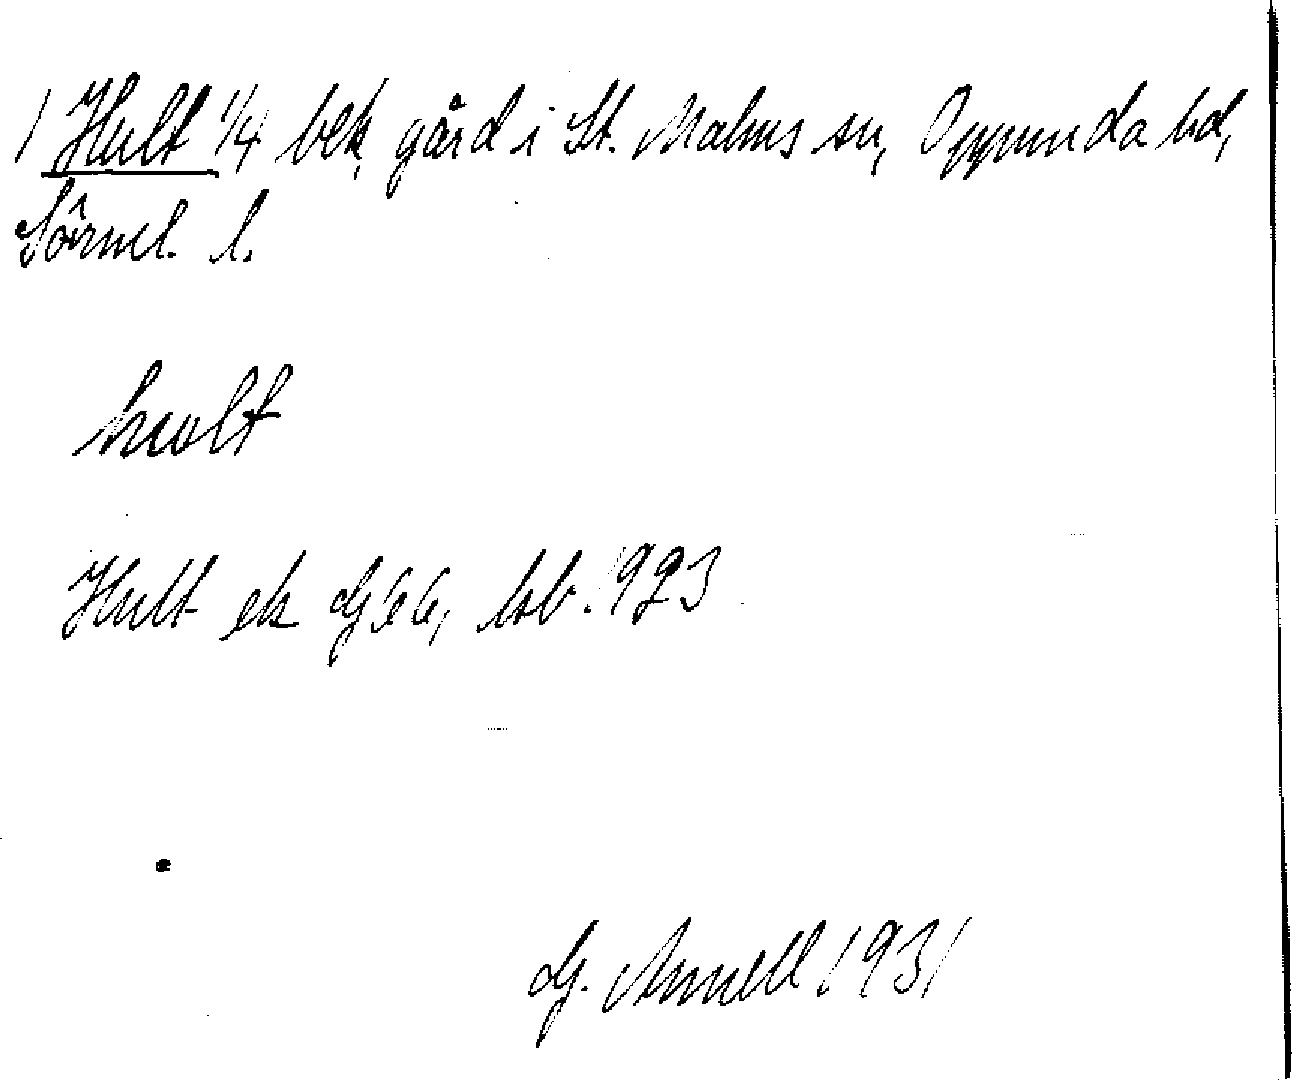 1 Hult 1/4 bek, gård i St. Malms sn, Oppunda hd,
Sörml. l.
hwolt
Hult ek G 66, lsb. 1923
G. Annell 1931